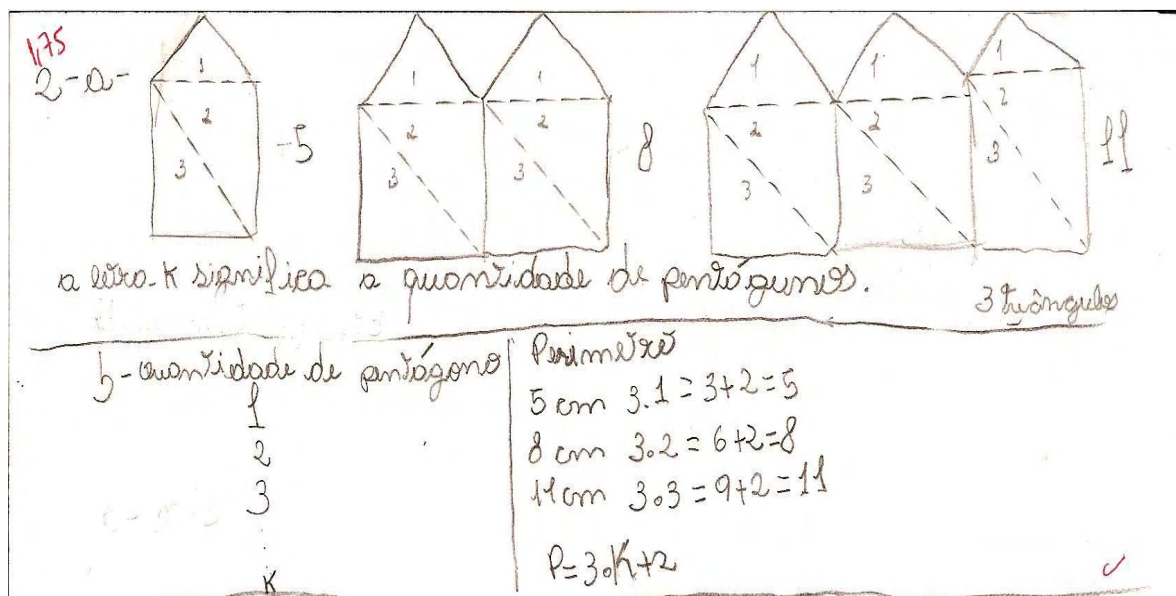 1,75
2-a-
1 1 1 1 1 1
2 2 2 2 2 2
3 -5 3 3 8 3 3 3 11
a letra K significa a quantidade de pentágunos.
3 truângulos
b-quantidade de pentágono Perimetro
1 5 cm 3.1=3+2=5
2 8 cm 3.2=6+2=8
3 11 cm 3.3=9+2=11
K P=3.K+2